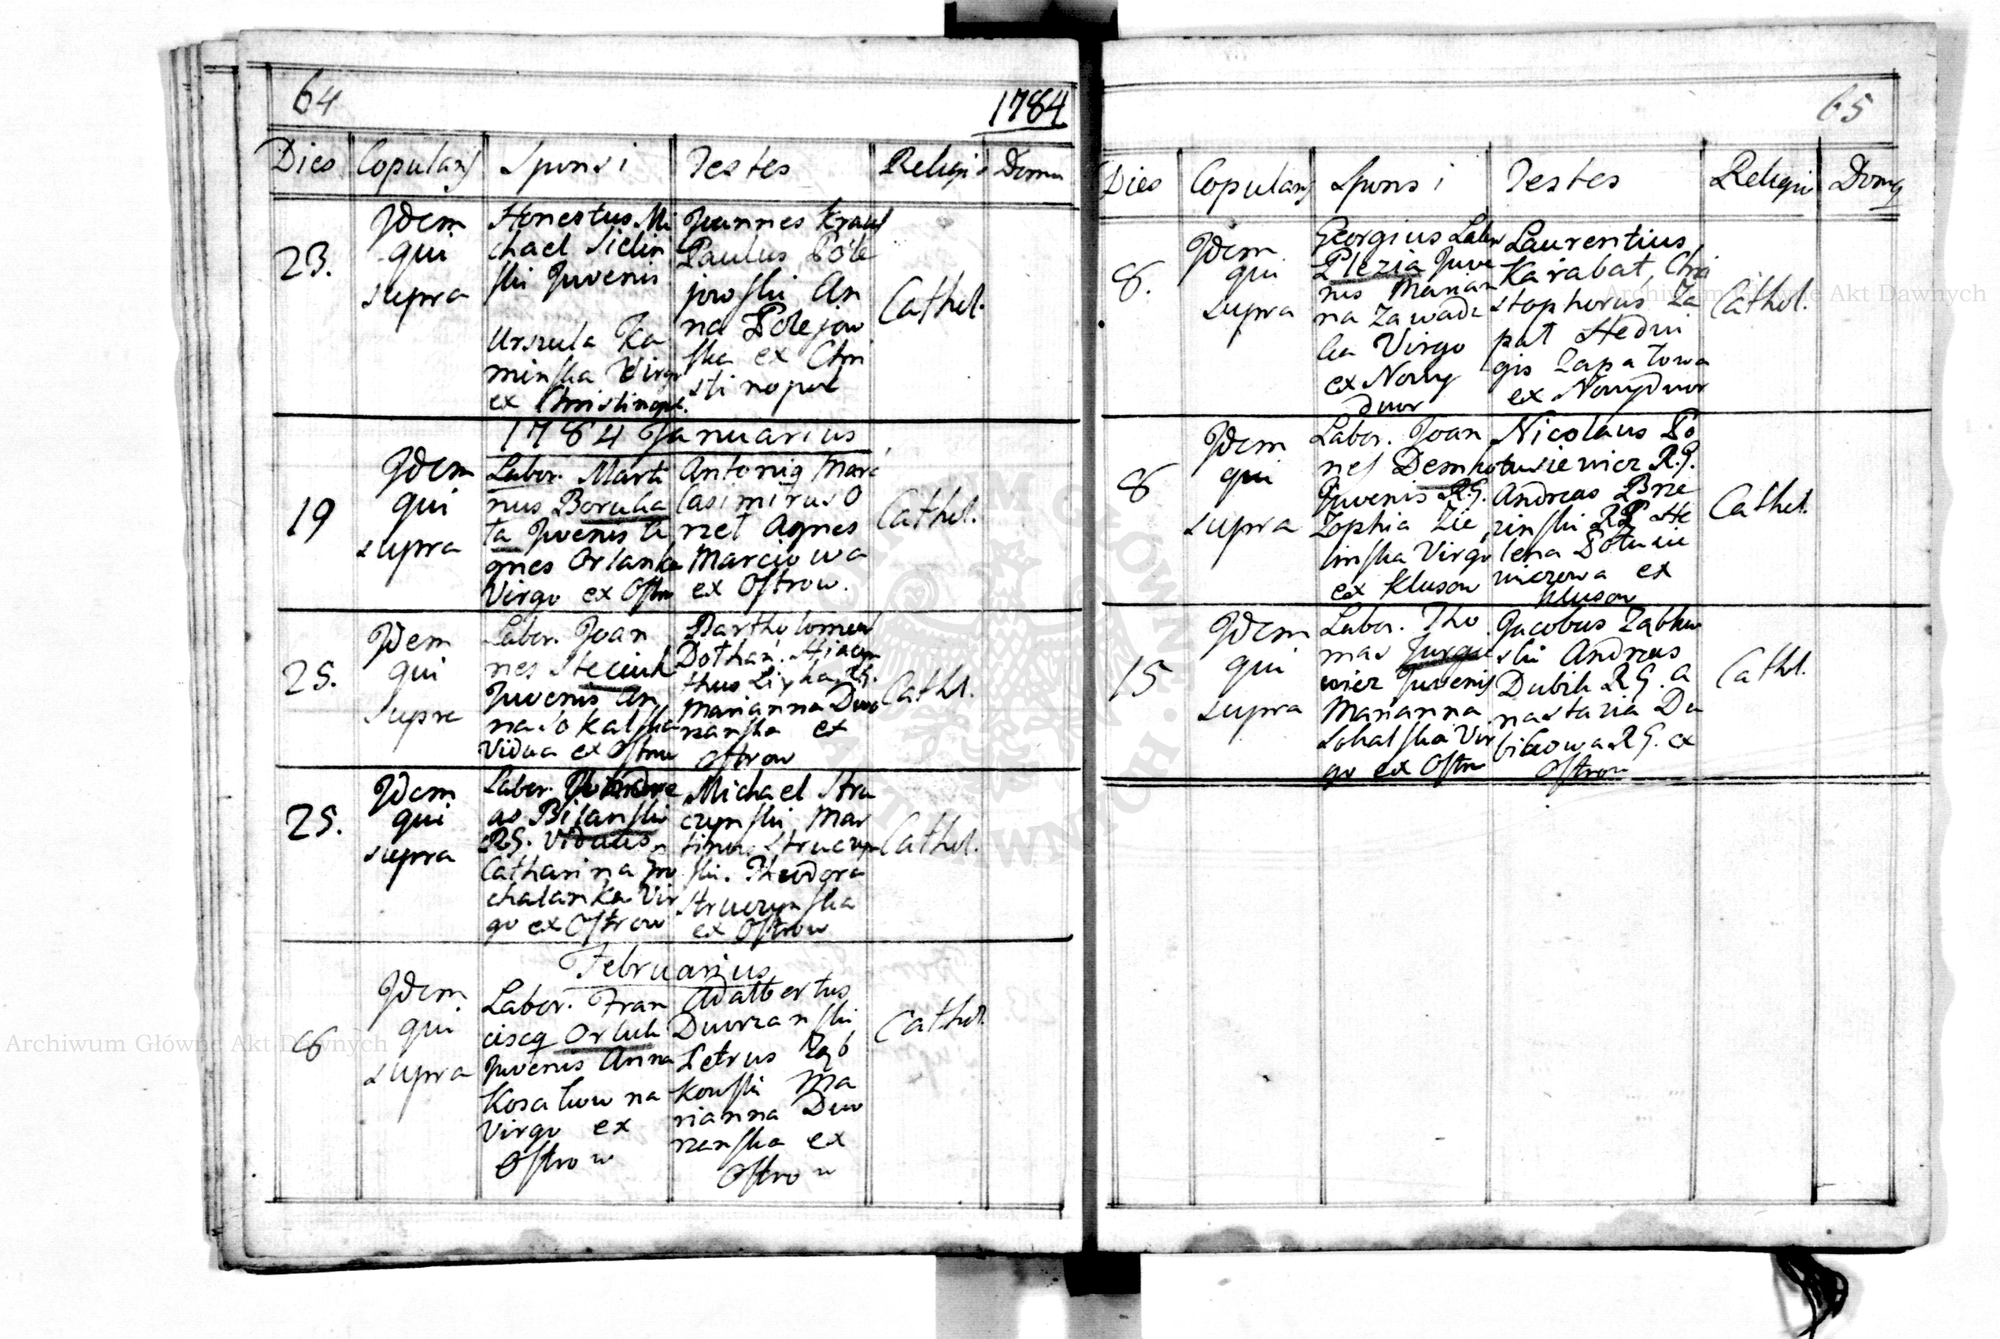 64
1784
Dies Copulans Sponsi Testes Religio Domu
23.
Idem
qui
supra
Honestus Mi
chael Sielin
ski Juvenis
Urszula Ka
minska Virgo
ex Christinopl.
Joannes Kraus
Paulus Pole
jowski An
na Polejow
ska ex Chri
stinopol
Cathol.
1784 Januarius
19
Idem
qui
supra
Labor. Marti
nus Borucha
ta Juvenis A
gnes Orlanka
Virgo ex Ostrow
Antonig Marc
Casimirus O
rzel Agnes
Marciowa
ex Ostrow.
Cathol.
25.
Idem
qui
supra
Labor. Joan
nes Steciuk
Juvenis An
na Sokalska
Vidua ex Ostrow
Bartholomeus
Dothan. Hiacyn
thus R.G.
Marianna Dwo
rzanska ex
Ostrow
Cathl.
25.
Idem
qui
supra
Labor. Andre
as Bilanski
R.G. Viduus
Catharina
chalanka Vir
go ex Ostrow
Michael Stru
czynski Mar
tinus Struczyn
ski. Theodora
Struczynska
ex Ostrow
Cathol.
Februarius
6
Idem
qui
supra
Labor. Fran
ciscq Orluk
Juvenis Anna
Kosakowna
Virgo ex
Ostrow
Adalbertus
Dworzanski
Petrus Ząb
kowski Ma
rianna Dwo
rzanska ex
Ostrow
Cathol.
65
Dies Copulans Sponsi Testes Religio Domq
8.
Idem
qui
supra
Georgius Labor
Plezia Juve
nis Marian
na Zawadz
ka Virgo
ex Nowy
dwor
Laurentius
Karabat, Chri
stophorus Za
pał Hedwi
gis Zapałowa
ex Nowydwor
Cathol.
8
Idem
qui
supra
Labor. Joan
nes Demko
Juvenis R.G.
Zophia Zie
linska Virgo
ex Klusow
Nicolaus Po
tusiewicz R.G.
Andreas Brze
zinski R.G. He
lena Potusie
wiczowa ex
Klusow
Cathol.
15
Idem
qui
supra
Labor. Tho
mas Jurgie
wicz Juvenis
Marianna
Sokalska Vir
go ex Ostrow
Jacobus Ząbkow
ski Andreas
Dubik R.G. A
nastazia Du
bikowa R.G. ex
Ostrow
Cathl.
Archiwum Główne Akt Dawnych
Archiwum Główne Akt Dawnych
ARCHIWUM GŁÓWNE AKT DAWNYCH